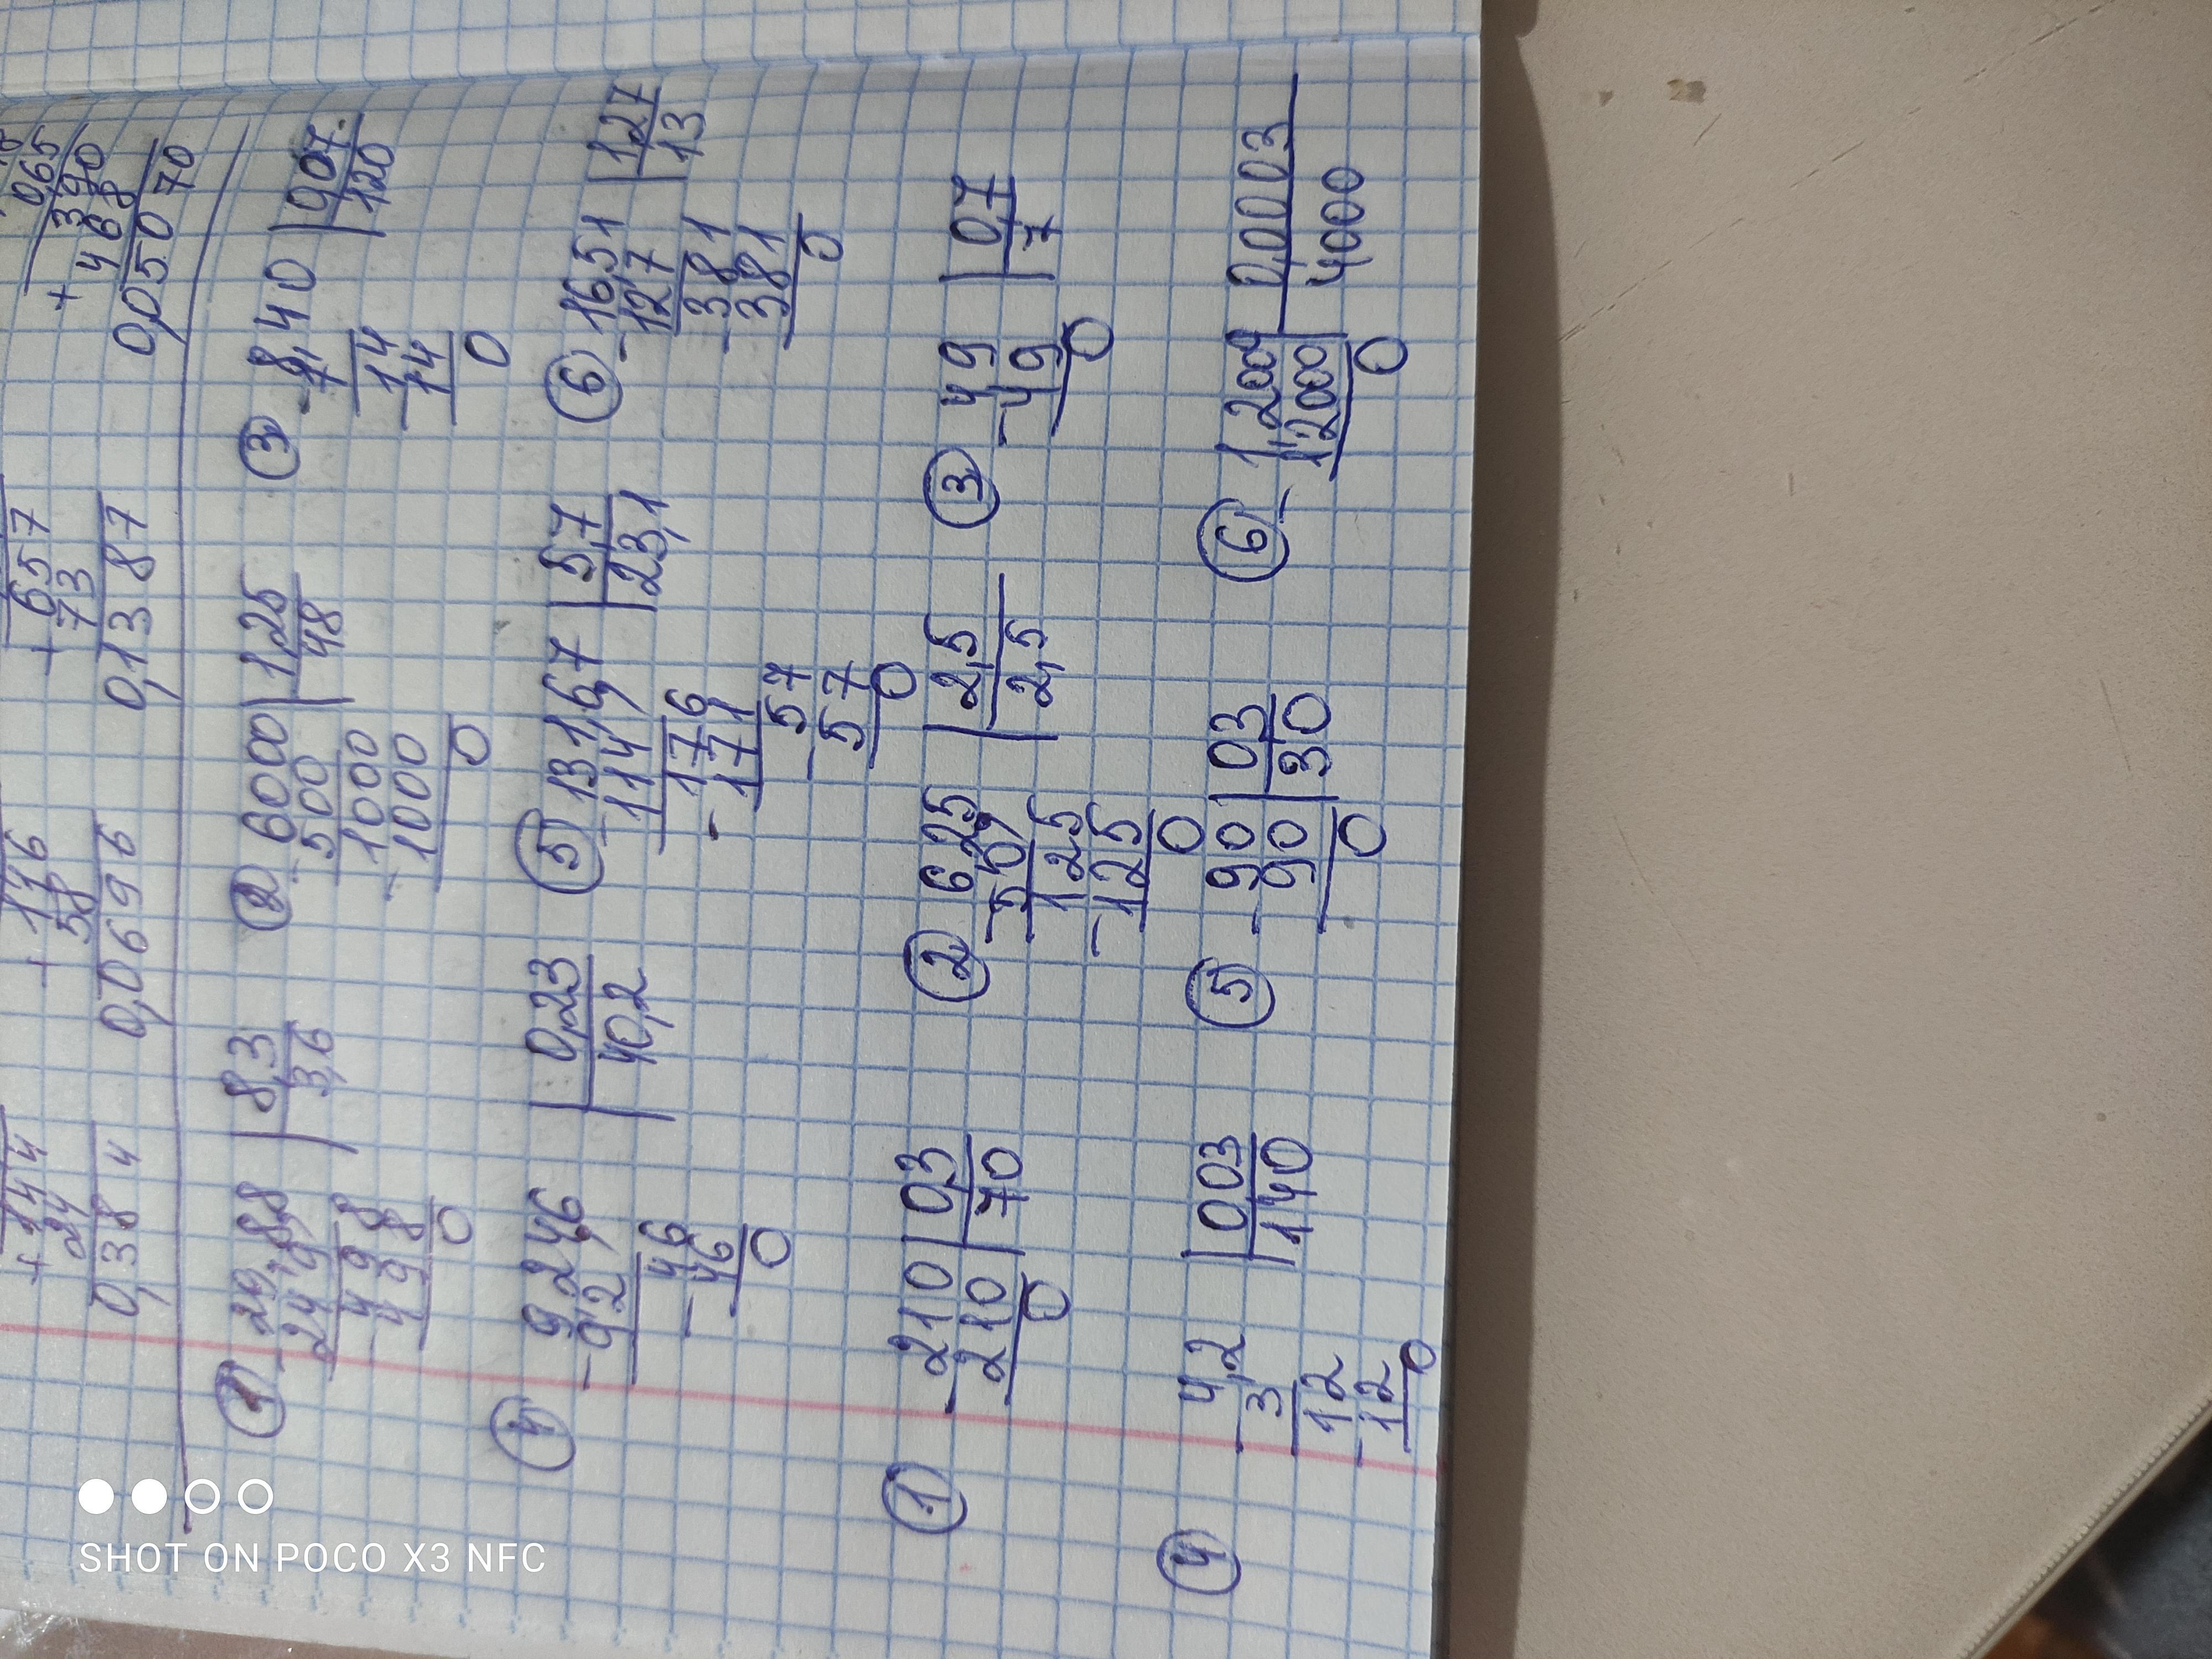 + 144 + 116 + 657 065
24 58 73 + 390
0,384 0,0696 0,1387 468
0,05070
① 29,88 | 8,3 ② 6000 | 125 ③ 8,40 | 0,07
- 249 | 3,6 - 500 | 48 - 7 | 120
498 1000 14
- 498 - 1000 - 14
0 0 0
④ 9,246 | 0,23 ⑤ 131,67 | 5,7 ⑥ 1651 | 127
- 92 | 40,2 - 114 | 23,1 - 127 | 13
46 176 381
- 46 - 171 - 381
0 57 0
- 57
0
① 210 | 0,3 ② 6,25 | 2,5 ③ 49 | 0,7
- 210 | 70 - 50 | 2,5 - 49 | 7
0 125 0
- 125
0
④ 4,2 | 003 ⑤ 90 | 03 ⑥ 1,200 | 0,0003
- 3 | 140 - 90 | 30 - 1,2000 | 4000
12 0 0
- 12
0
SHOT ON POCO X3 NFC